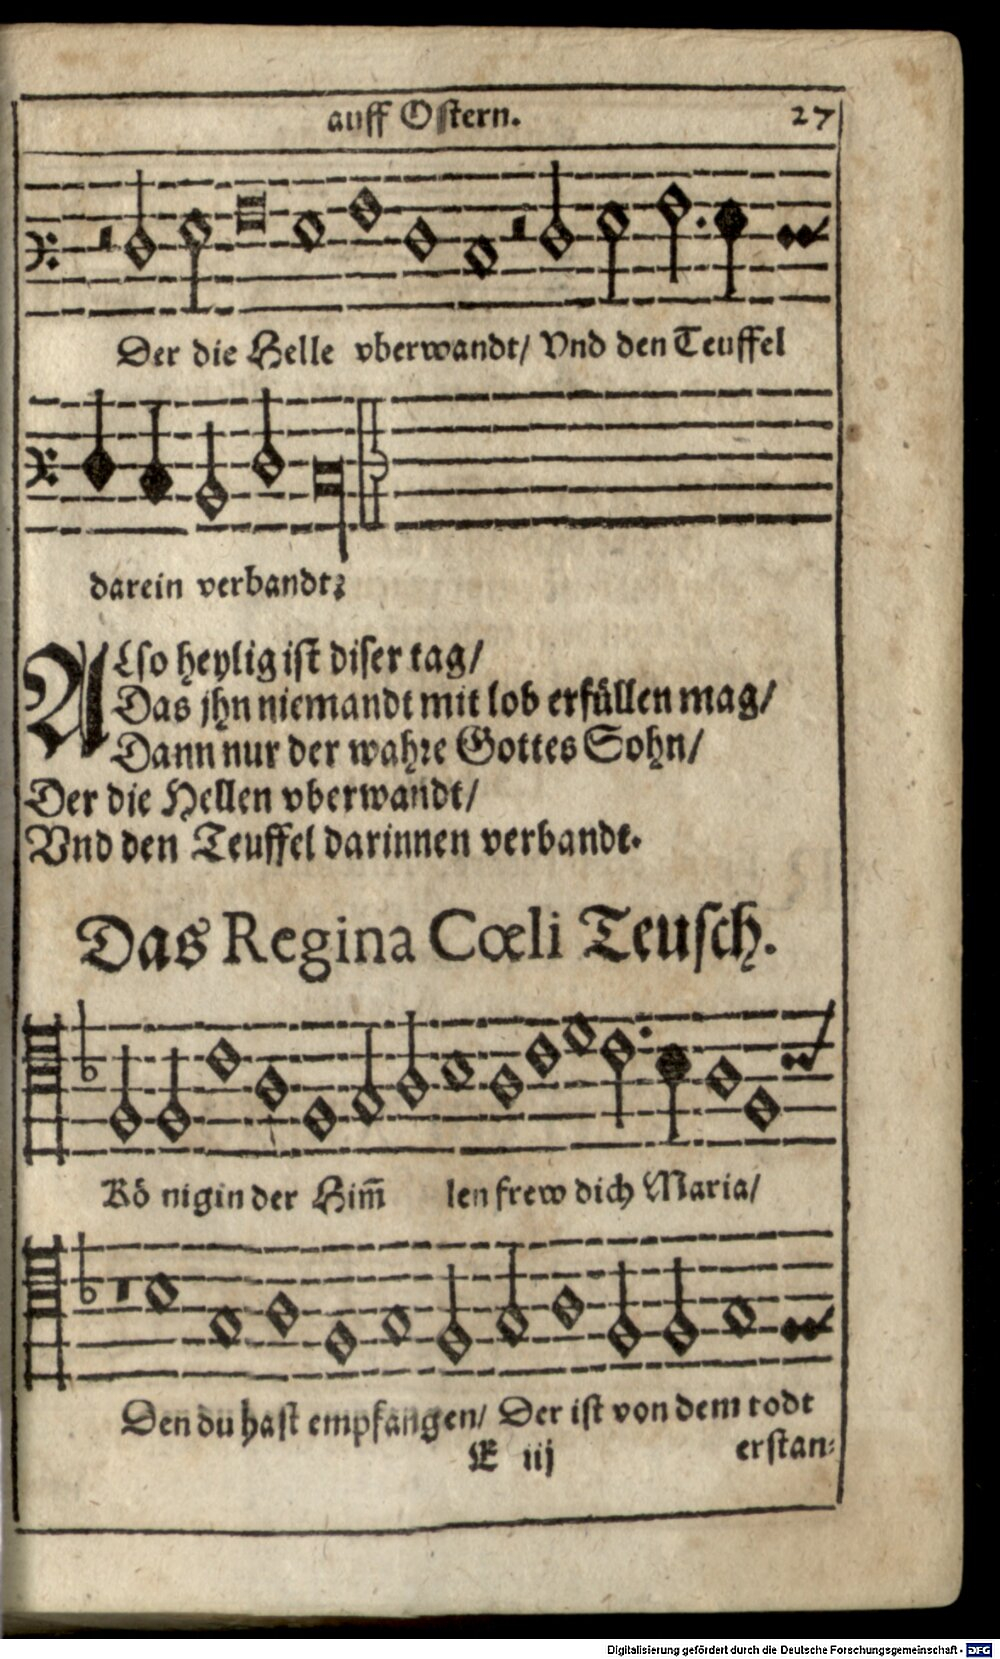 auff Ostern. 27
Der die Helle vberwandt/ Vnd den Teuffel
darein verbandt;
Also heylig ist diser tag/
Das jhn niemandt mit lob erfüllen mag/
Dann nur der wahre Gottes Sohn/
Der die Hellen vberwandt/
Vnd den Teuffel darinnen verbandt.
Das Regina Cœli Teusch.
Kö nigin der Him̄ len frew dich Maria/
Den du hast empfangen/ Der ist von dem todt
E iij erstan-
Digitalisierung gefördert durch die Deutsche Forschungsgemeinschaft - DFG